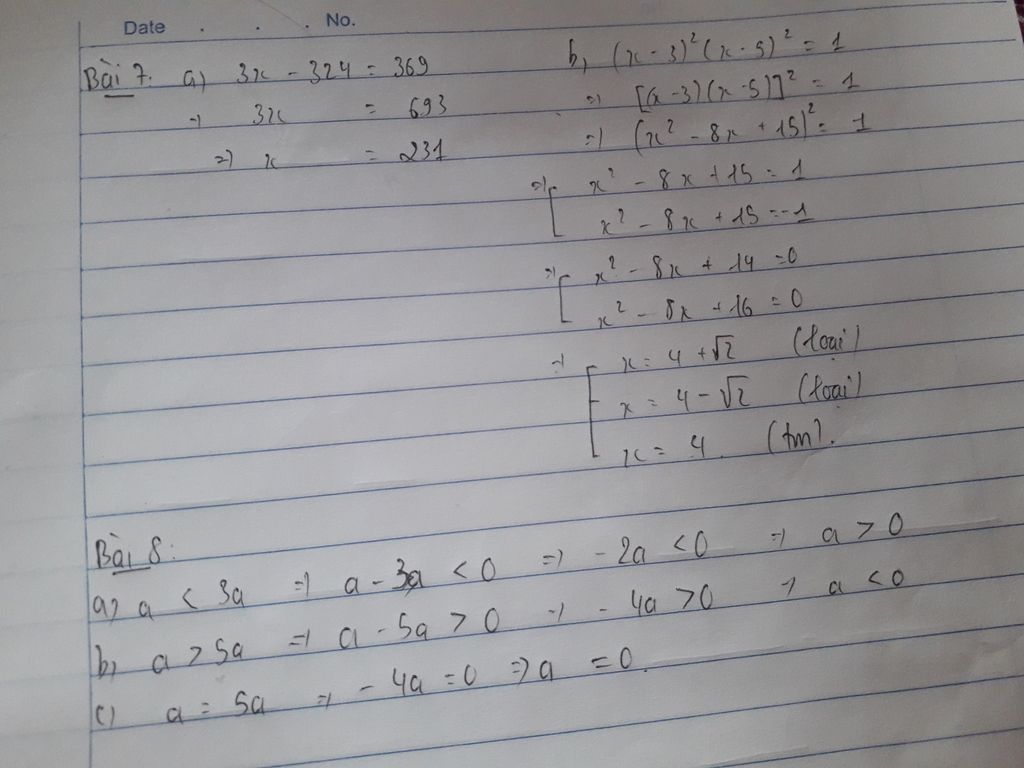 Date . . . No.
Bài 7: a) 3x - 324 = 369
=> 3x = 693
=> x = 231
b) (x - 3)² (x - 5)² = 1
=> [(x - 3)(x - 5)]² = 1
=> (x² - 8x + 15)² = 1
=> [ x² - 8x + 15 = 1
x² - 8x + 15 = -1
=> [ x² - 8x + 14 = 0
x² - 8x + 16 = 0
=> [ x = 4 + √2 (loại)
x = 4 - √2 (loại)
x = 4 (tm).
Bài 8:
a) a < 3a => a - 3a < 0 => - 2a < 0 => a > 0
b) a > 5a => a - 5a > 0 => - 4a > 0 => a < 0
c) a = 5a => - 4a = 0 => a = 0.